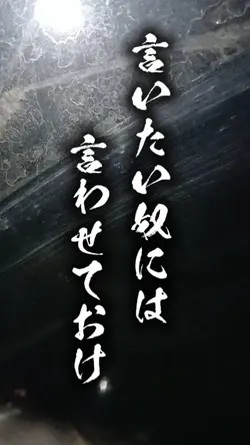 言いたい奴には
言わせておけ